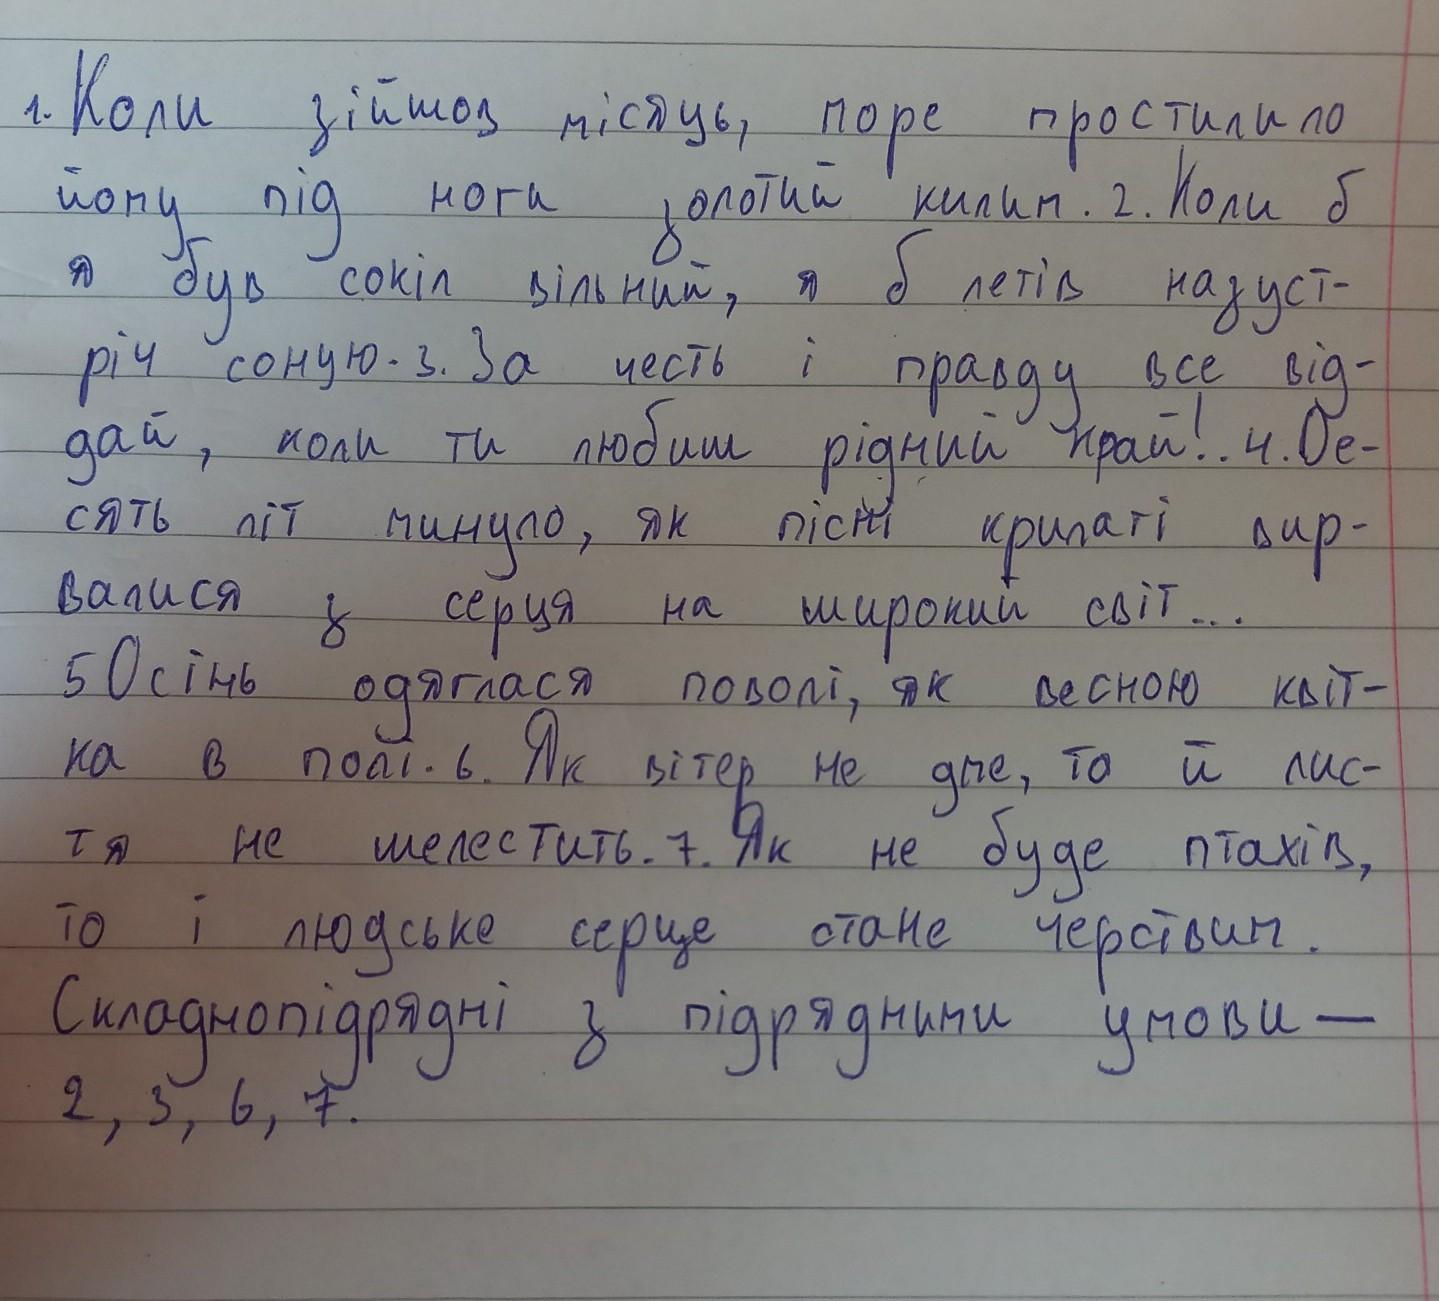 1. Коли зійшов місяць, море простилило
йому під ноги золотий килим. 2. Коли б
я був сокіл вільний, я б летів назуст-
річ сонцю. 3. За честь і правду все від-
дай, коли ти любиш рідний край!.. 4. Де-
сять літ минуло, як пісні крилаті вир-
валися з серця на широкий світ...
5 Осінь одяглася поволі, як весною квіт-
ка в полі. 6. Як вітер не дме, то й лис-
тя не шелестить. 7. Як не буде птахів,
то і людське серце стане черствим.
Складнопідрядні з підрядними умови —
2, 3, 6, 7.